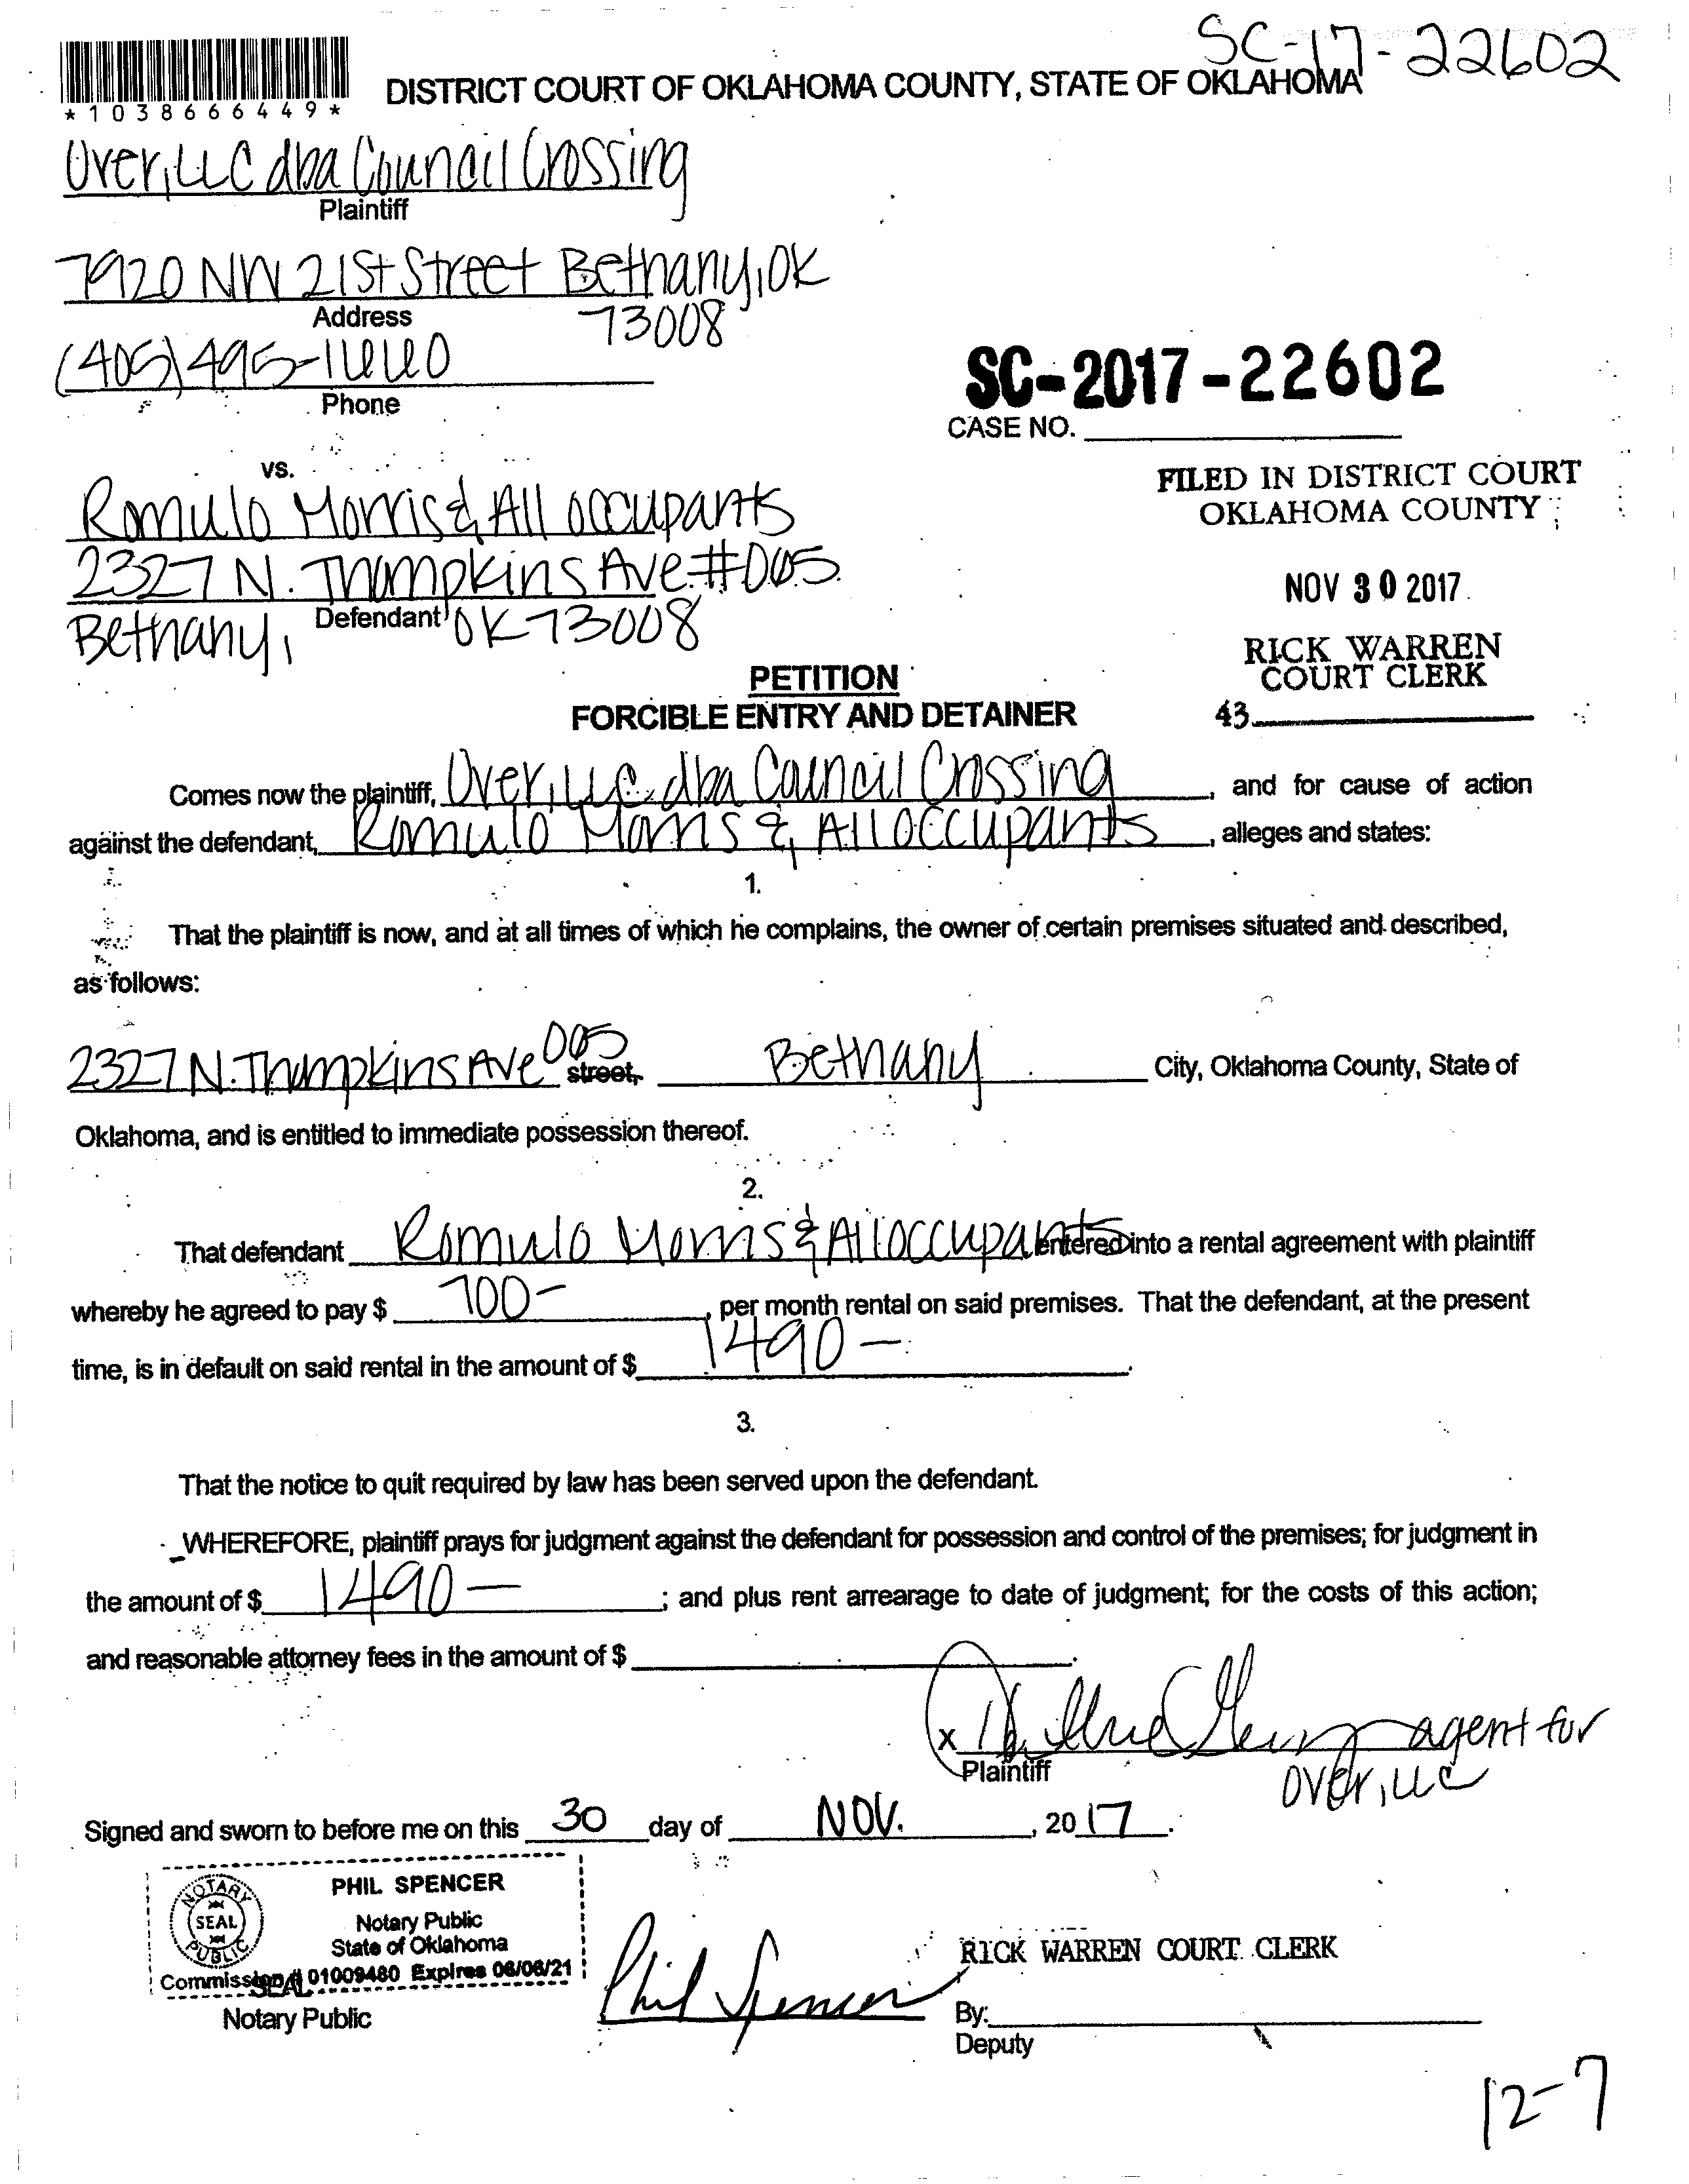 SC-17-22602
*1038666449*
DISTRICT COURT OF OKLAHOMA COUNTY, STATE OF OKLAHOMA
Over, LLC dba Council Crossing
Plaintiff
7920 NW 21st Street Bethany, OK
Address
73008
(405) 495-1660
Phone
SC-2017-22602
CASE NO.
vs.
Romulo Morris & All occupants
2327 N. Thompkins Ave. #005
Defendant
Bethany, OK 73008
FILED IN DISTRICT COURT
OKLAHOMA COUNTY
NOV 30 2017
RICK WARREN
COURT CLERK
43
PETITION
FORCIBLE ENTRY AND DETAINER
Comes now the plaintiff, Over, LLC dba Council Crossing, and for cause of action
against the defendant, Romulo Morris & All Occupants, alleges and states:
1.
That the plaintiff is now, and at all times of which he complains, the owner of certain premises situated and described,
as follows:
2327 N. Thompkins Ave 005 street, Bethany City, Oklahoma County, State of
Oklahoma, and is entitled to immediate possession thereof.
2.
That defendant Romulo Morris & All occupants entered into a rental agreement with plaintiff
whereby he agreed to pay $ 700-, per month rental on said premises. That the defendant, at the present
time, is in default on said rental in the amount of $ 1490-.
3.
That the notice to quit required by law has been served upon the defendant.
WHEREFORE, plaintiff prays for judgment against the defendant for possession and control of the premises; for judgment in
the amount of $ 1490-; and plus rent arrearage to date of judgment; for the costs of this action;
and reasonable attorney fees in the amount of $.
X agent for
Plaintiff
Over, LLC
Signed and sworn to before me on this 30 day of NOV., 2017.
NOTARY PUBLIC
SEAL
PHIL SPENCER
Notary Public
State of Oklahoma
Commission # 01009480 Expires 06/06/21
SEAL
Notary Public
Phil Spencer
RICK WARREN COURT CLERK
By:
Deputy
12-7